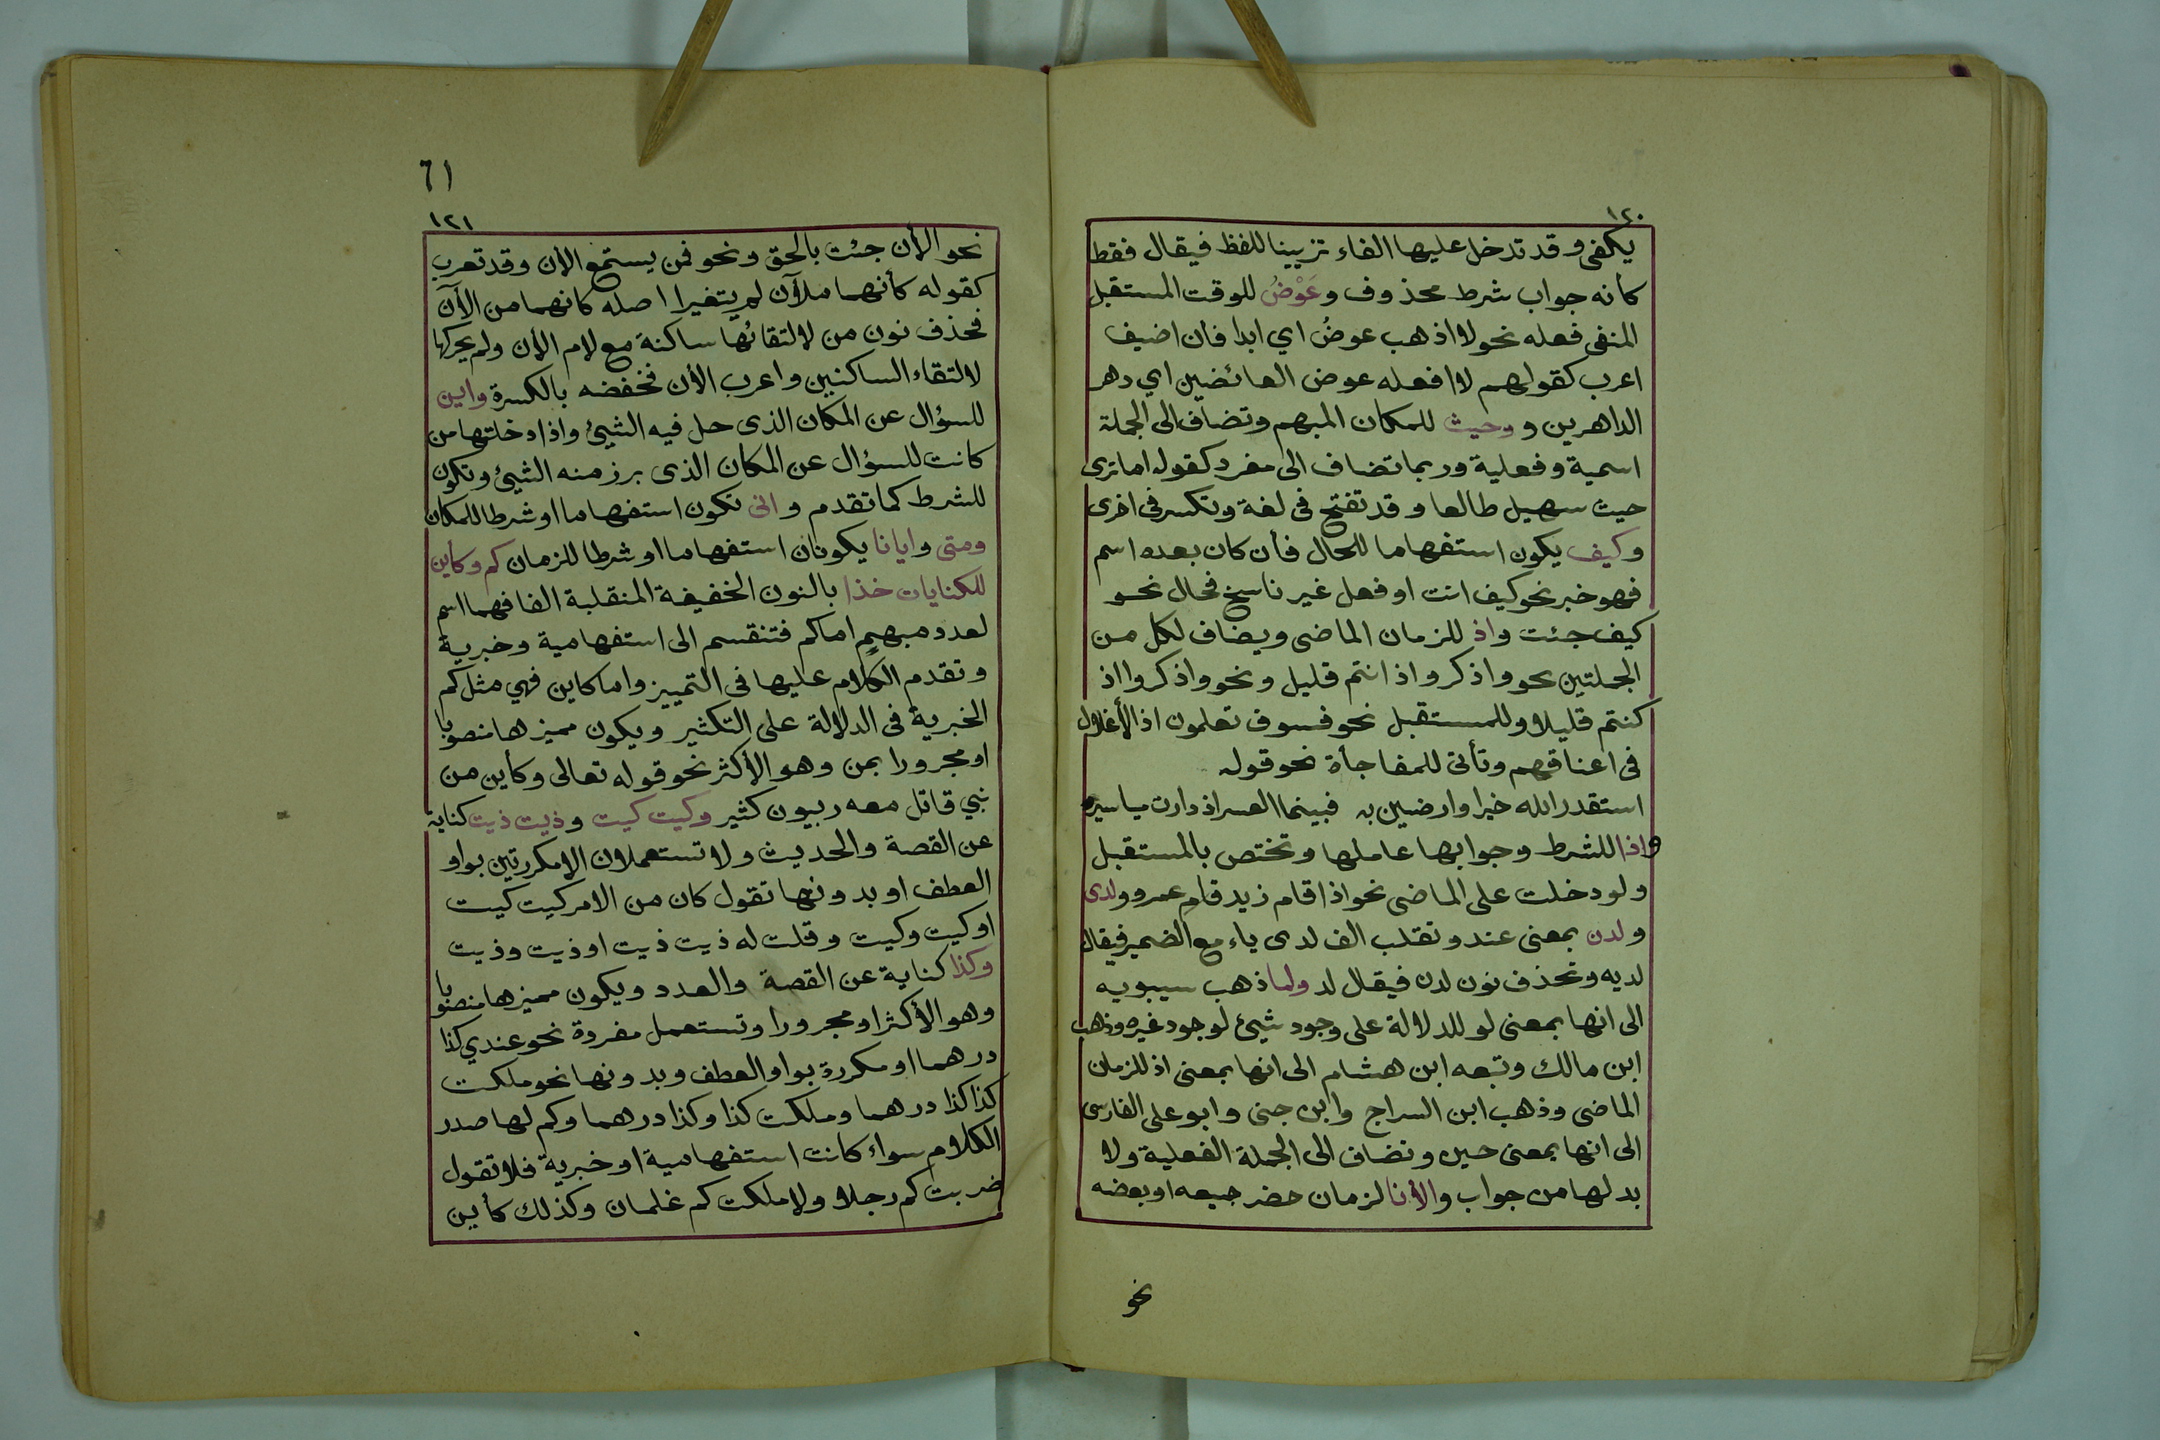 ١٢٠
يكفى وقد تدخل عليها الفاء تزيينا للفظ فيقال فقط
كانه جواب شرط محذوف وعَوْضُ للوقت المستقبل
المنفى فعله نحو لا اذهب عوضُ اي ابدا فان اضيف
اعرب كقولهم لا افعله عوض العائضين اي دهر
الداهرين و وحيث للمكان المبهم وتضاف الى الجملة
اسمية وفعلية وربما تضاف الى مفرد كقوله اما ترى
حيث سهيل طالعا وقد تفتح فى لغة وتكسر فى اخرى
وكيف يكون استفهاما للحال فأن كان بعده اسم
فهو خبر نحو كيف انت او فعل غير ناسخ فحال نحو
كيف جئت واذ للزمان الماضى ويضاف لكل من
الجملتين نحو واذكروا اذ انتم قليل ونحو واذكروا اذ
كنتم قليلا وللمستقبل نحو فسوف تعلمون اذ الأغلال
فى اعناقهم وتأتى للمفاجأة نحو قوله
استقدر الله خيرا وارضين به فبينما العسر اذ دارت مياسير
واذا للشرط وجوابها عاملها وتختص بالمستقبل
ولو دخلت على الماضى نحو اذا قام زيد قام عمرو ولدى
ولدن بمعنى عند وتقلب الف لدى ياء مع الضمير فيقال
لديه وتحذف نون لدن فيقال لد ولما ذهب سيبويه
الى انها بمعنى لو للدلالة على وجود شيئ لوجود غيره وذهب
ابن مالك وتبعه ابن هشام الى انها بمعنى اذ للزمان
الماضى وذهب ابن السراج وابن جنى وابو على الفارسى
الى انها بمعنى حين وتضاف الى الجملة الفعلية ولا
بد لها من جواب والأنا لزمان حضر جميعه او بعضه
نحو
٦١
١٢١
نحو الأن جئت بالحق ونحو فمن يستمع الان وقد تعرب
كقوله كأنهما ملآن لم يتغيرا اصله كانهما من الآن
فحذف نون من لالتقائها ساكنة مع لام الأن ولم يحركها
لالتقاء الساكنين واعرب الأن فخفضه بالكسرة واين
للسؤال عن المكان الذى حل فيه الشيئ واذا دخلتها من
كانت للسؤال عن المكان الذى برز منه الشيئ وتكون
للشرط كما تقدم وانى تكون استفهاما او شرطا للمكان
ومتى وايانا يكونان استفهاما او شرطا للزمان كم وكأين
للكنايات خذا بالنون الخفيفة المنقلبة الفا فهما اسم
لعدد مبهم اما كم فتنقسم الى استفهامية وخبرية
وتقدم الكلام عليها فى التمييز واما كاين فهي مثل كم
الخبرية فى الدلالة على التكثير ويكون مميزها منصوبا
او مجرورا بمن وهو الأكثر نحو قوله تعالى وكاين من
نبي قاتل معه ربيون كثير وكيت كيت وذيت ذيت كناية
عن القصة والحديث ولا تستعملان الا مكررتين بواو
العطف او بدونها تقول كان من الامر كيت كيت
او كيت وكيت وقلت له ذيت ذيت او ذيت وذيت
وكذا كناية عن القصة والعدد ويكون مميزها منصوبا
وهو الأكثر او مجرورا وتستعمل مفردة نحو عندي كذا
درهما او مكررة بواو العطف وبدونها نحو ملكت
كذا كذا درهما وملكت كذا وكذا درهما وكم لها صدر
الكلام سواء كانت استفهامية او خبرية فلا تقول
ضربت كم رجلا ولا ملكت كم غلمان وكذلك كأين